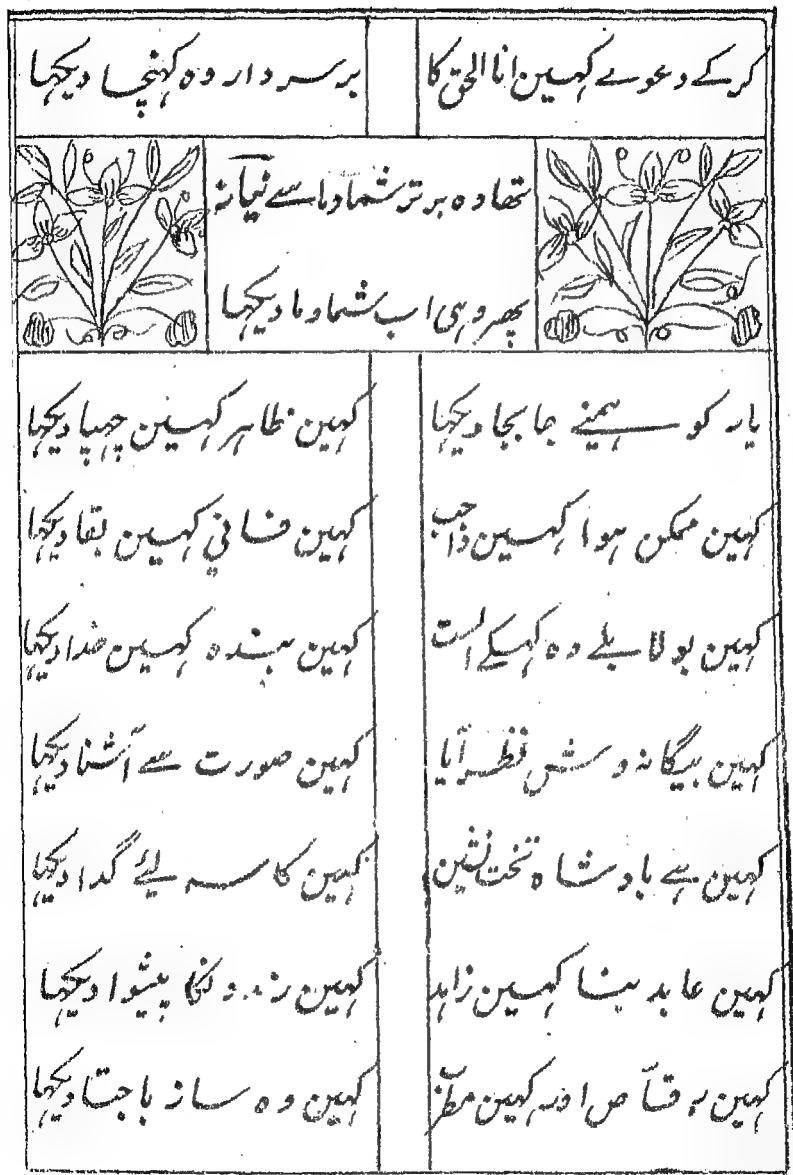 کرکے دعوے کہین انا الحق کا
برسردار وہ کہنچا دیکہا
تھا وہ برتر شما و ما سے نیاز
پھر وہی اب شما و ما دیکہا
یار کو ہمنے جا بجا دیکہا
کہین ظاہر کہین چہپا دیکہا
کہین ممکن ہوا کہین واجب
کہین فانی کہین بقا دیکہا
کہین بولا بلے وہ کہکے الست
کہین بندہ کہین خدا دیکہا
کہین بیگانہ وش نظر آیا
کہین صورت سے آشنا دیکہا
کہین ہے بادشاہ تخت نشین
کہین کاسہ لئے گدا دیکہا
کہین عابد بنا کہین زاہد
کہین رندونکا پیشوا دیکہا
کہین رقاص اور کہین مطرب
کہین وہ ساز باجتا دیکہا